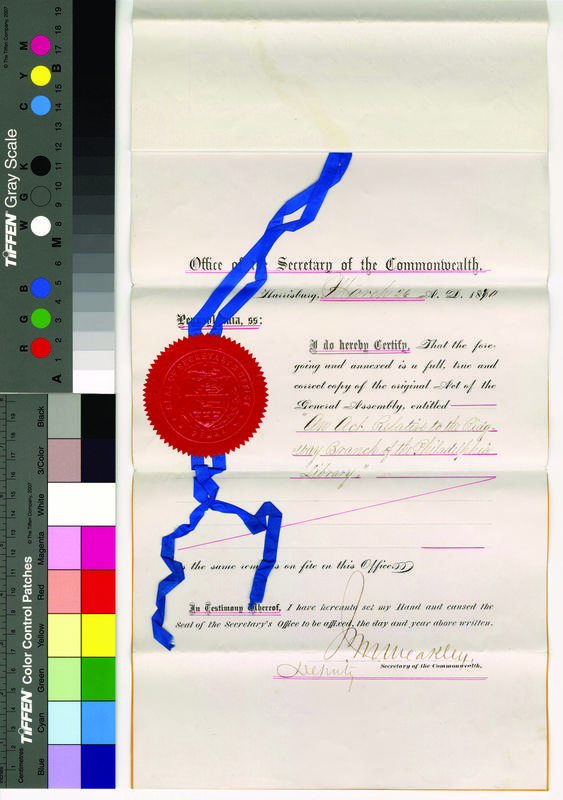 Office of the Secretary of the Commonwealth.
Harrisburg, March 26 A. D. 1870
Pennsylvania, ss:
I do hereby Certify, That the fore-
going and annexed is a full, true and
correct copy of the original Act of the
General Assembly, entitled
"An Act Relative to the Ridg-
way Branch of the Philadelphia
Library."
as the same remains on file in this Office
In Testimony Whereof, I have hereunto set my Hand and caused the
Seal of the Secretary's Office to be affixed, the day and year above written.
Deputy Secretary of the Commonwealth.
© The Tiffen Company, 2007
TIFFEN Gray Scale
R G B W G K C Y M
A 1 2 3 4 5 6 M 8 9 10 11 12 13 14 15 B 17 18 19
© The Tiffen Company, 2007
TIFFEN Color Control Patches
Centimetres
Blue
Cyan
Green
Yellow
Red
Magenta
White
3/Color
Black